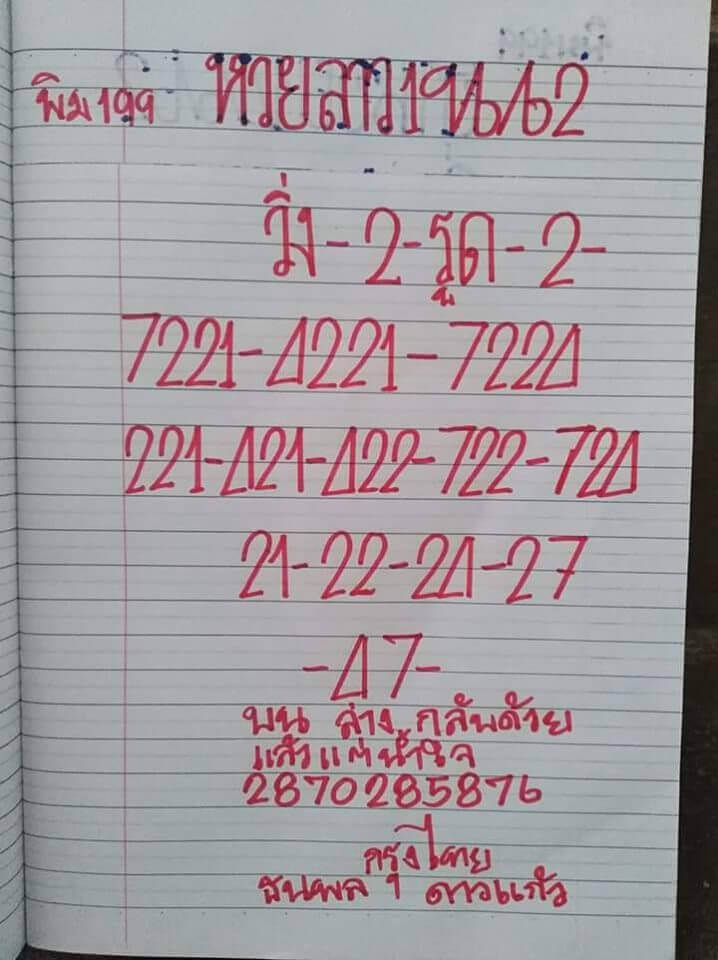 พิม 199 หวยลาว 19/1/62
วิ่ง-2-รูด-2-
7221-4221-7224
221-421-422-722-724
21-22-24-27
-47-
บน ล่าง กลับด้วย
แล้วแต่น้ำใจ
2870285876
กรุงไทย
ธนพล ดาวแก้ว